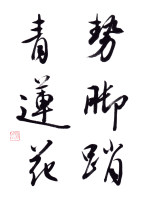 勢脚踏
青蓮花